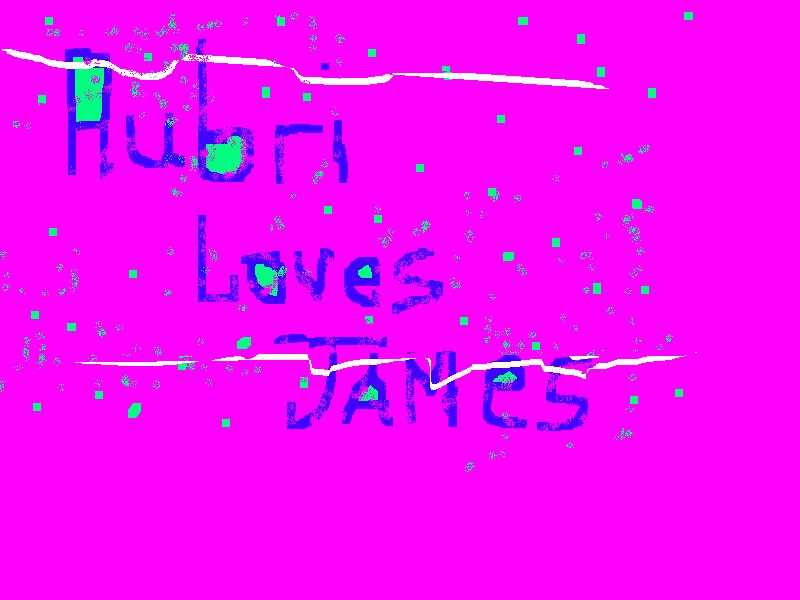 Aubri
Loves
JAMes